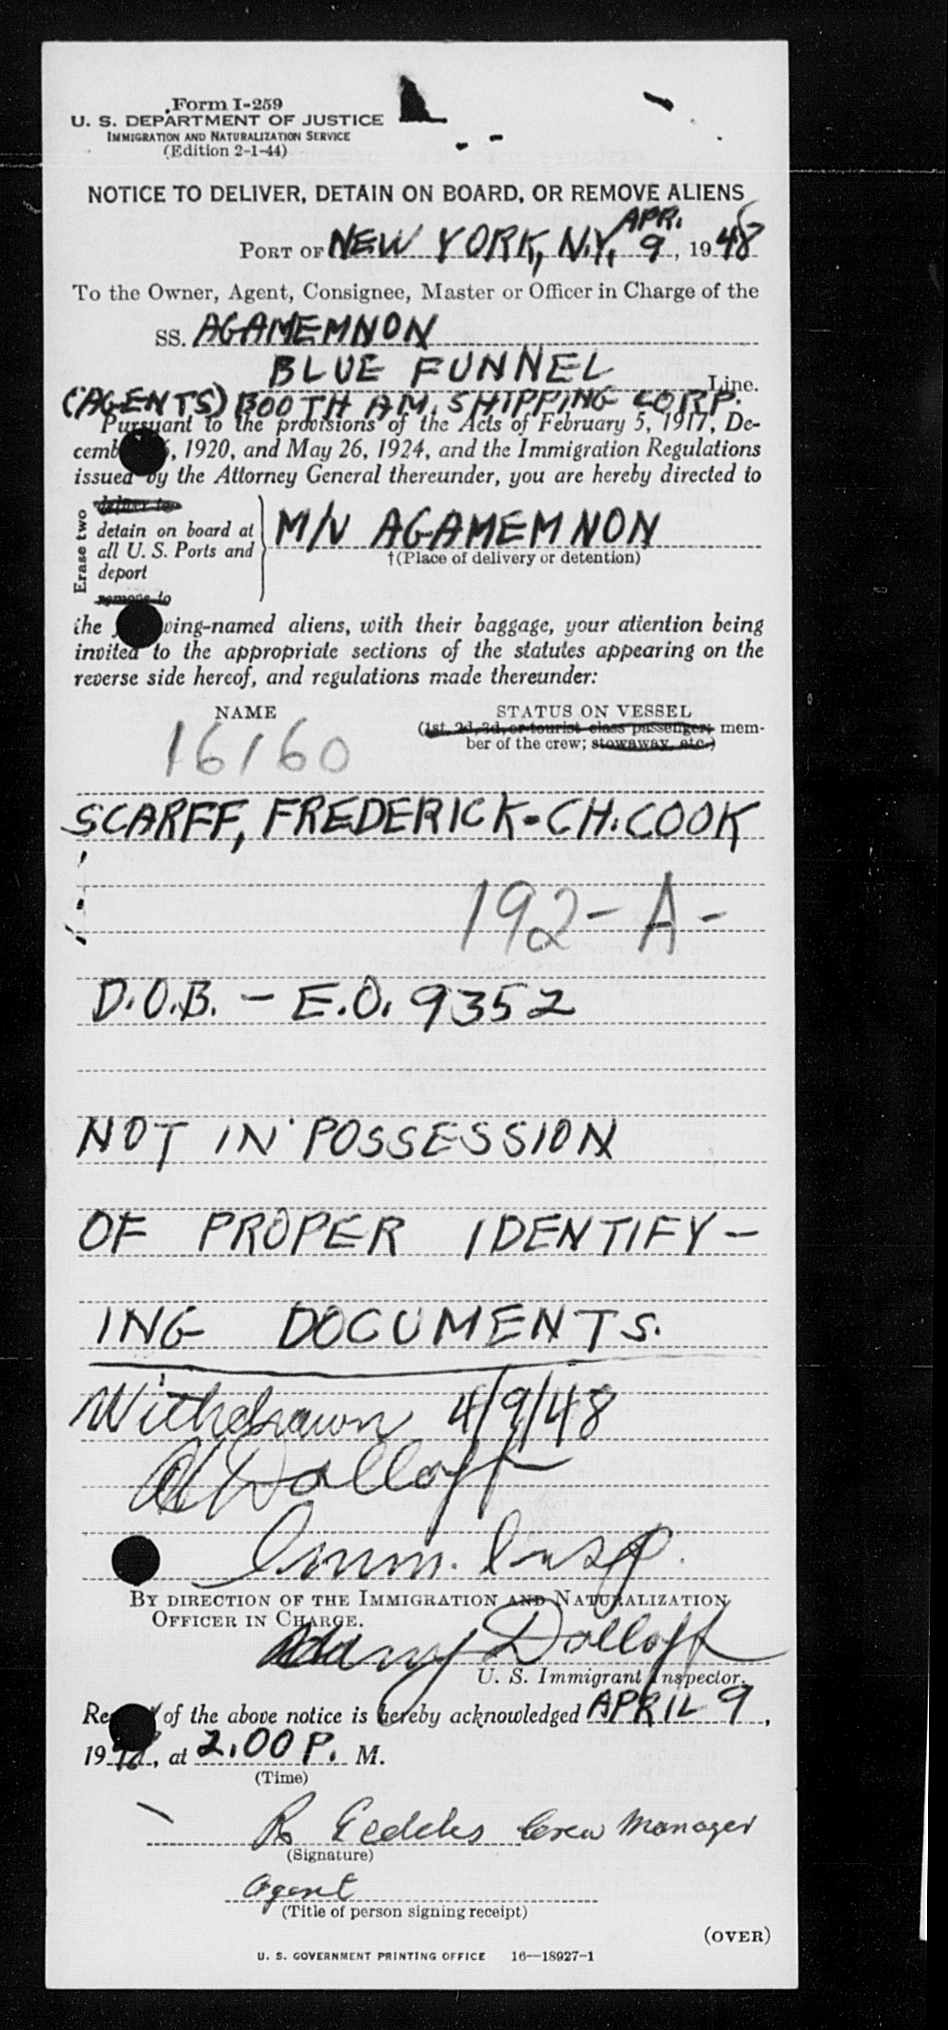 Form I-259
U. S. DEPARTMENT OF JUSTICE
IMMIGRATION AND NATURALIZATION SERVICE
(Edition 2-1-44)
NOTICE TO DELIVER, DETAIN ON BOARD, OR REMOVE ALIENS
PORT OF NEW YORK, N.Y., APR. 9, 1948
To the Owner, Agent, Consignee, Master or Officer in Charge of the
SS. AGAMEMNON
BLUE FUNNEL Line.
(AGENTS) BOOTH AM. SHIPPING CORP.
Pursuant to the provisions of the Acts of February 5, 1917, De-
cemb 6, 1920, and May 26, 1924, and the Immigration Regulations
issued by the Attorney General thereunder, you are hereby directed to
Erase two
deliver to
detain on board at
all U. S. Ports and
deport
remove to
M/V AGAMEMNON
†(Place of delivery or detention)
the wing-named aliens, with their baggage, your attention being
invited to the appropriate sections of the statutes appearing on the
reverse side hereof, and regulations made thereunder:
NAME STATUS ON VESSEL
(1st, 2d, 3d, or tourist class passenger; mem-
ber of the crew; stowaway, etc.)
16160
SCARFF, FREDERICK - CH. COOK
192-A-
D.O.B. - E.O. 9352
NOT IN POSSESSION
OF PROPER IDENTIFY-
ING DOCUMENTS.
Withdrawn 4/9/48
Dolloff
Imm. Insp.
BY DIRECTION OF THE IMMIGRATION AND NATURALIZATION
OFFICER IN CHARGE.
Dolloff
U. S. Immigrant Inspector.
Re of the above notice is hereby acknowledged APRIL 9,
1948, at 2:00 P. M.
(Time)
R Geddes Crew Manager
(Signature)
Agent
(Title of person signing receipt)
(OVER)
U. S. GOVERNMENT PRINTING OFFICE 16—18927-1